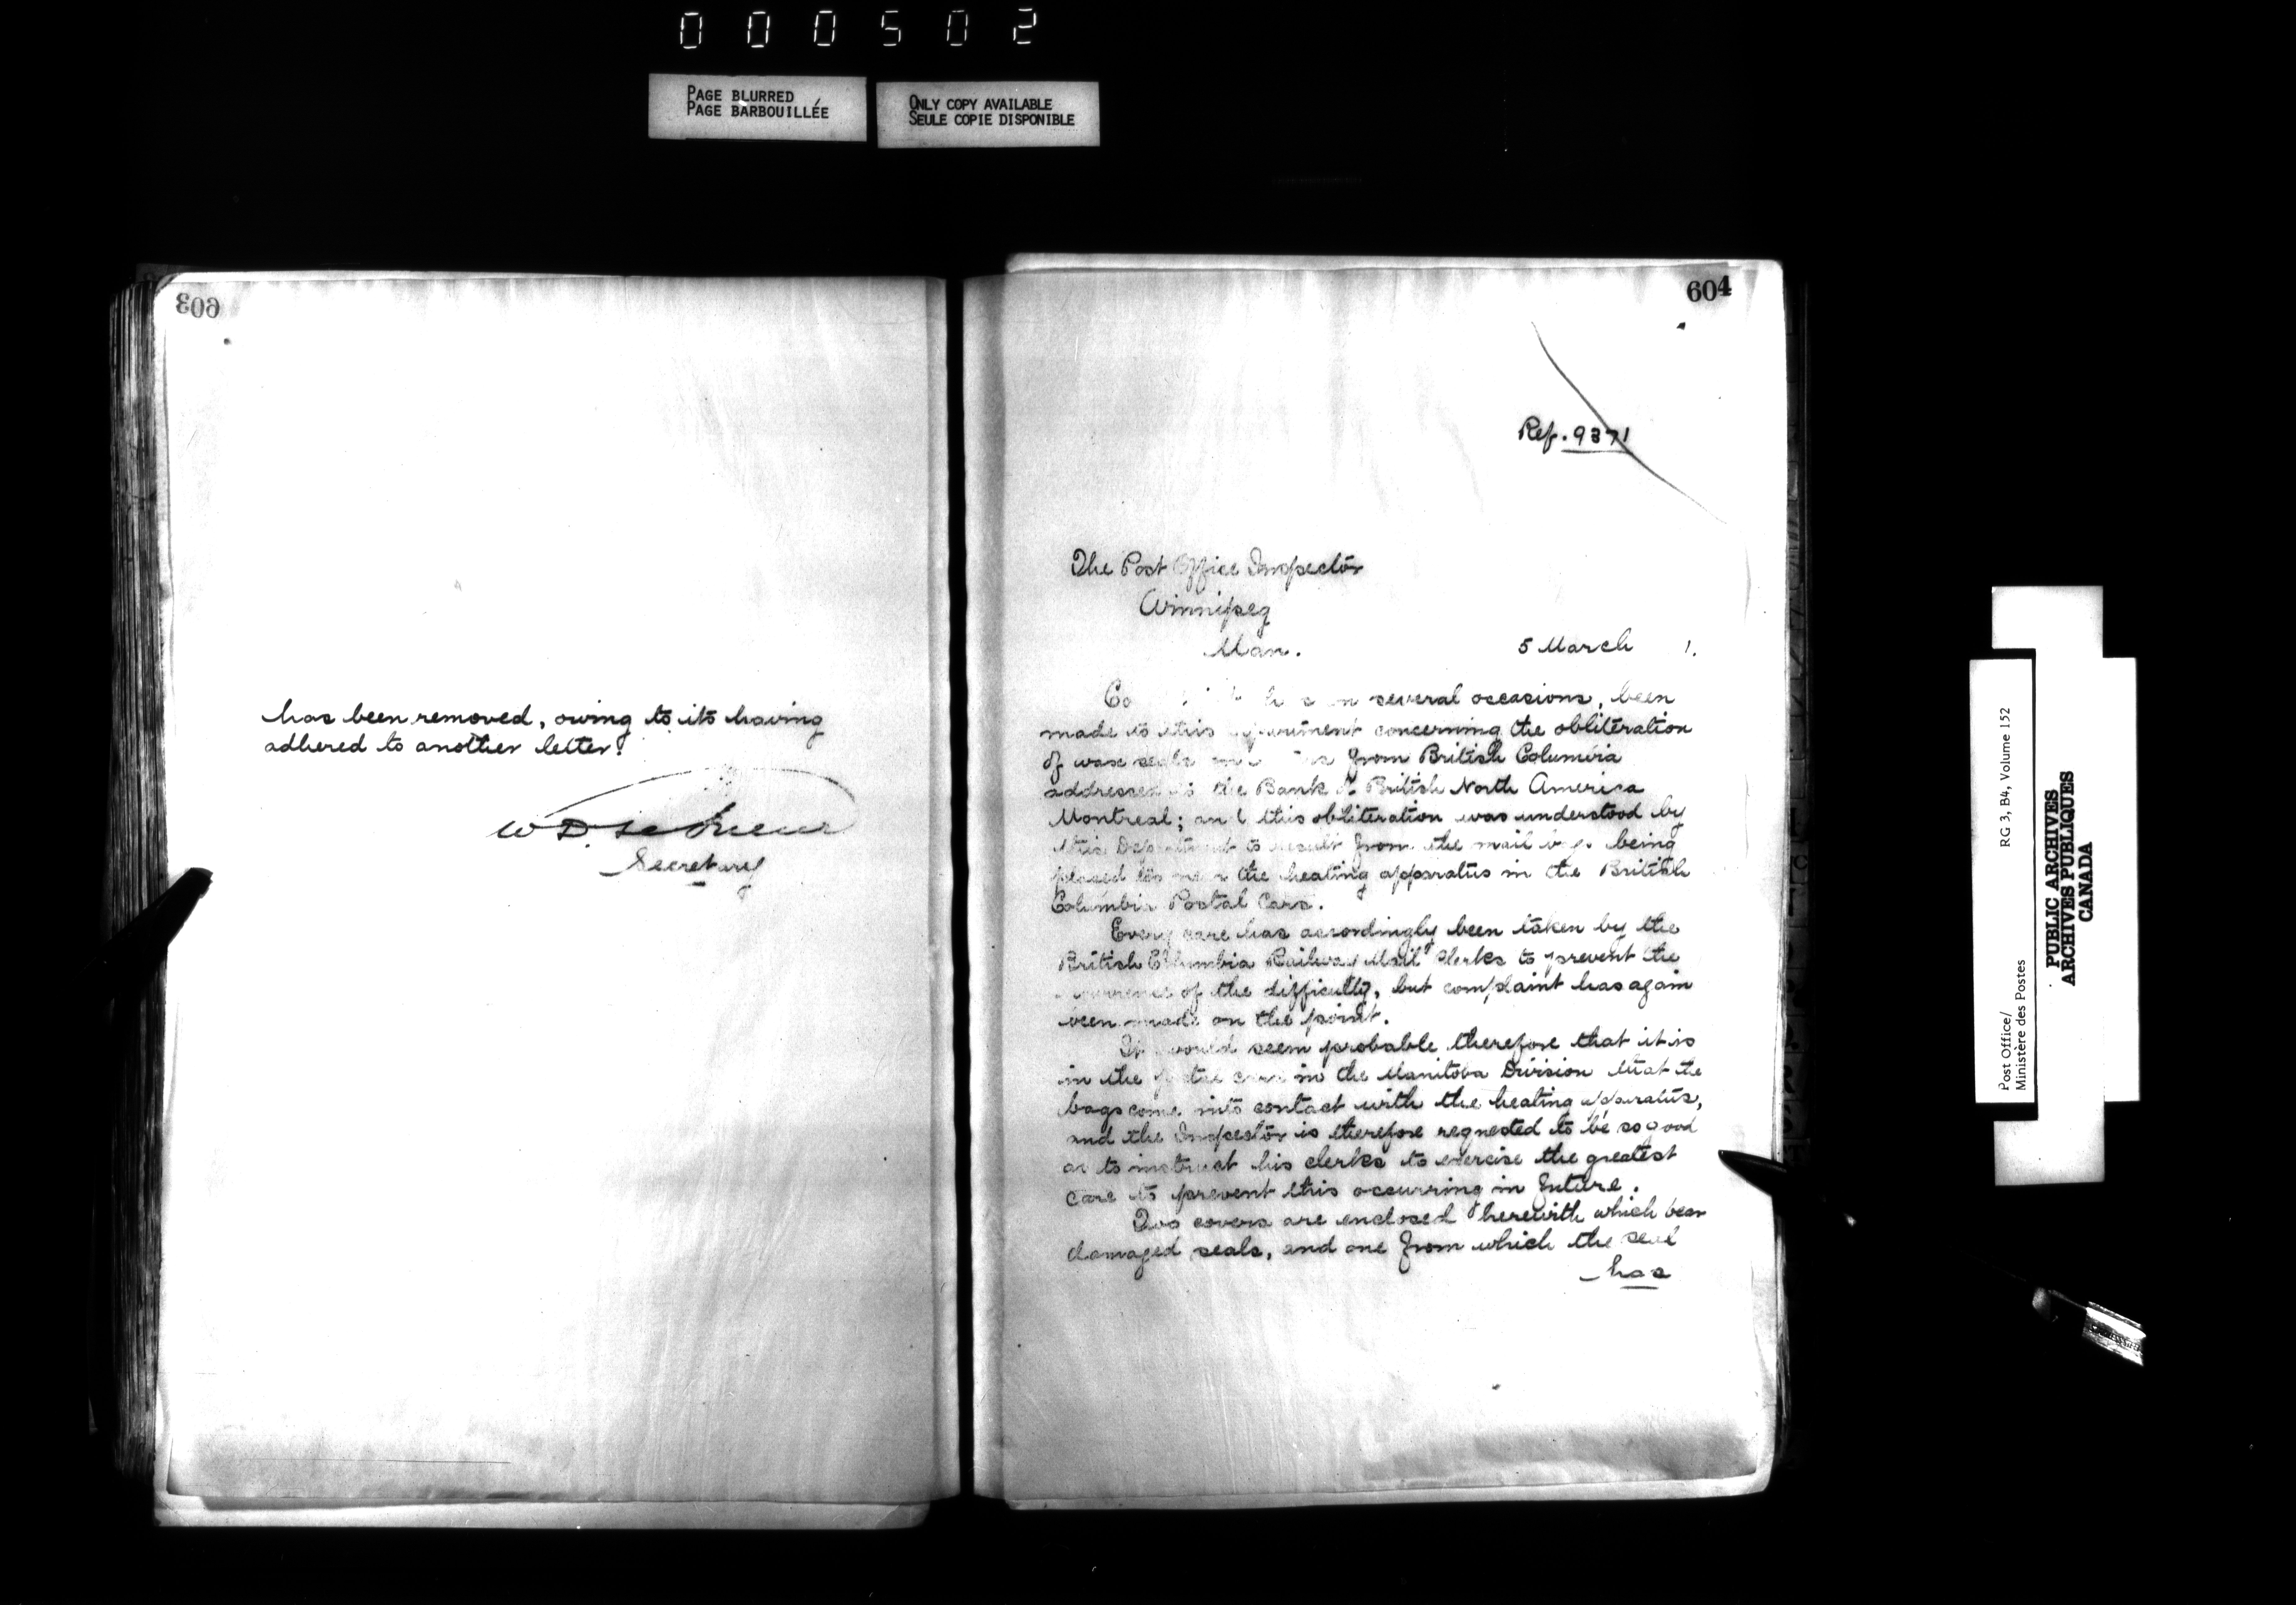 000502
PAGE BLURRED
PAGE BARBOUILLÉE
ONLY COPY AVAILABLE
SEULE COPIE DISPONIBLE
603
has been removed, owing to its having
adhered to another letter.
W D. LeSueur
Secretary
604
Ref. 9371
The Post Office Inspector
Winnipeg
Man.
5 March 1.
several occasions, been
made to this concerning the obliteration
of wax seals from British Columbia
addressed to the Bank of British North America
Montreal; and this obliteration was understood by
this Department to result from the mail bags being
placed too near the heating apparatus in the British
Columbia Postal Cars.
Every care has accordingly been taken by the
British Columbia Railway Mail Clerks to prevent the
of the difficulty, but complaint has again
been made on the point.
It would seem probable therefore that it is
in the postal cars in the Manitoba Division that the
bags come into contact with the heating apparatus,
and the Inspector is therefore requested to be so good
as to instruct his clerks to exercise the greatest
care to prevent this occurring in future.
Two covers are enclosed herewith which bear
damaged seals, and one from which the seal
has
Post Office/
Ministère des Postes
RG 3, B4, Volume 152
PUBLIC ARCHIVES
ARCHIVES PUBLIQUES
CANADA